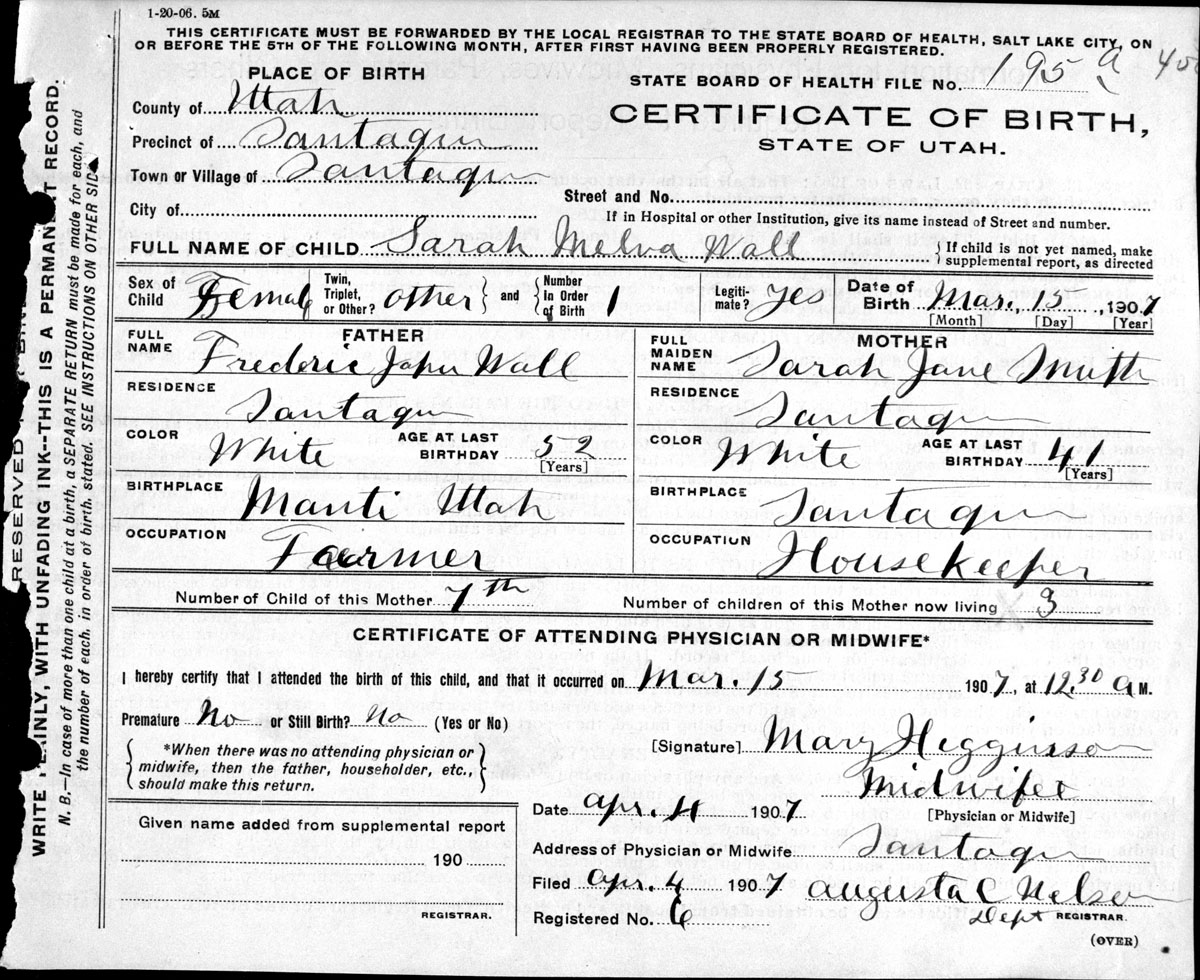 1-20-06. 5M
THIS CERTIFICATE MUST BE FORWARDED BY THE LOCAL REGISTRAR TO THE STATE BOARD OF HEALTH, SALT LAKE CITY, ON
OR BEFORE THE 5TH OF THE FOLLOWING MONTH, AFTER FIRST HAVING BEEN PROPERLY REGISTERED.
PLACE OF BIRTH
STATE BOARD OF HEALTH FILE No. 195 a
County of Utah
CERTIFICATE OF BIRTH,
STATE OF UTAH.
Precinct of Santaquin
Town or Village of Santaquin
Street and No.
City of
If in Hospital or other Institution, give its name instead of Street and number.
FULL NAME OF CHILD Sarah Melva Wall
If child is not yet named, make
supplemental report, as directed
Sex of Child Female
Twin, Triplet, or Other? other and Number In Order of Birth 1
Legitimate? Yes
Date of Birth Mar. 15, 1907
[Month] [Day] [Year]
FATHER
FULL NAME Frederic John Wall
RESIDENCE Santaquin
COLOR White AGE AT LAST BIRTHDAY 52
[Years]
BIRTHPLACE Manti Utah
OCCUPATION Farmer
MOTHER
FULL MAIDEN NAME Sarah Jane
RESIDENCE Santaquin
COLOR White AGE AT LAST BIRTHDAY 41
[Years]
BIRTHPLACE Santaquin
OCCUPATION Housekeeper
Number of Child of this Mother 7th
Number of children of this Mother now living 3
CERTIFICATE OF ATTENDING PHYSICIAN OR MIDWIFE*
I hereby certify that I attended the birth of this child, and that it occurred on Mar. 15 1907, at 12.30 a M.
Premature No or Still Birth? No (Yes or No)
*When there was no attending physician or
midwife, then the father, householder, etc.,
should make this return.
[Signature] Mary Higginson
Midwife
[Physician or Midwife]
Date Apr. 4 1907
Address of Physician or Midwife Santaquin
Filed Apr. 4 1907 Augusta C Nelson
Registered No. 6 Dept REGISTRAR.
(OVER)
Given name added from supplemental report
190
REGISTRAR.
WRITE PLAINLY, WITH UNFADING INK--THIS IS A PERMANENT RECORD.
N. B.—In case of more than one child at a birth, a SEPARATE RETURN must be made for each, and
the number of each, in order of birth, stated. SEE INSTRUCTIONS ON OTHER SIDE
RESERVED